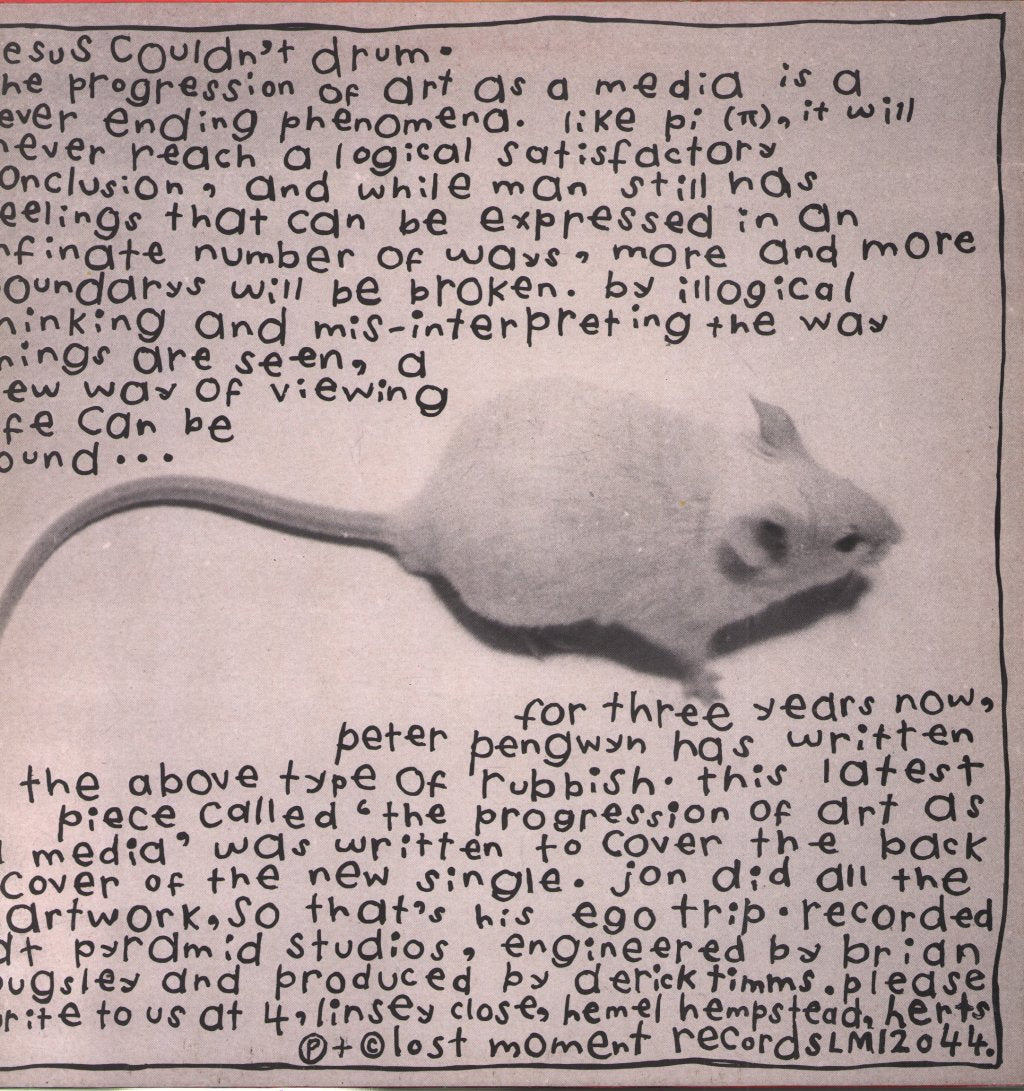 esus Couldn't drum.
he progression of art as a media is a
ever ending phenomena. like pi (π), it will
never reach a logical satisfactory
onclusion, and while man still has
eelings that can be expressed in an
nfinate number of ways, more and more
oundarys will be broken. by illogical
hinking and mis-interpreting the way
hings are seen, a
ew way of viewing
ife can be
ound...
for three years now,
peter pengwyn has written
the above type of rubbish. this latest
piece called 'the progression of art as
a media' was written to cover the back
cover of the new single. jon did all the
artwork, so that's his ego trip. recorded
at pyramid studios, engineered by brian
pugsley and produced by derick timms. please
write to us at 4, linsey close, hemel hempstead, herts
℗+©lost moment records LM12044.